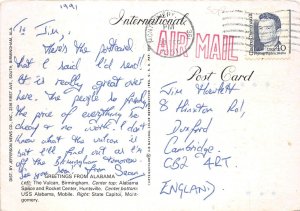 1991
International
AIR MAIL
USA
40
Post Card
To Jim,
Here's the postcard
that I said I'd send!
It is really great
over here. The people so friendly
the price of everything so
cheap & no worth. I don't
know what the vulcan is
but I'll find out as I'm
off the Birmingham tomorrow
from Sean
Jim Hewlett
8 Hinxton Rd,
Duxford
Cambridge.
CB2 4RT.
ENGLAND.
GREETINGS FROM ALABAMA
Left: The Vulcan, Birmingham. Center top: Alabama
Space and Rocket Center, Huntsville. Center bottom:
USS Alabama, Mobile. Right: State Capitol, Mont-
gomery.